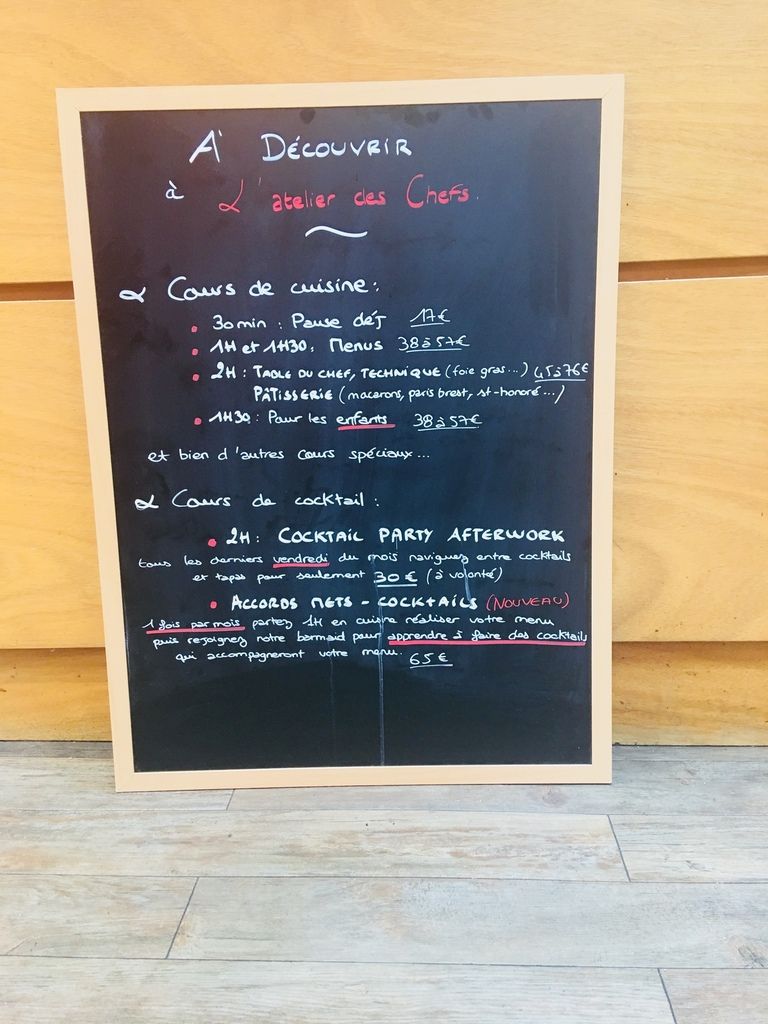 A' DÉCOUVRIR
à L'atelier des Chefs.
Cours de cuisine:
• 30min : Pause déJ 17€
• 1H et 1H30: Menus 38 à 57€
• 2H : TABLE DU CHEF, TECHNIQUE (foie gras...) 45 à 76€
PÂTISSERIE (macarons, paris brest, st-honoré...)
• 1H30 : Pour les enfants 38 à 57€
et bien d'autres cours spéciaux...
Cours de cocktail :
• 2H : COCKTAIL PARTY AFTERWORK
tous les derniers vendredi du mois naviguez entre cocktails
et tapas pour seulement 30€ (à volonté)
• ACCORDS METS - COCKTAILS (NOUVEAU)
1 fois par mois partez 1H en cuisine réaliser votre menu
puis rejoignez notre barmaid pour apprendre à faire des cocktails
qui accompagneront votre menu. 65€